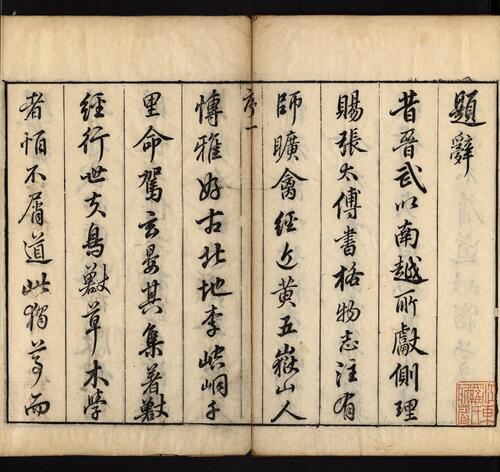 題辭
昔晉武以南越所獻側理
賜張太傅書格物志注有
師曠禽經近黃五嶽山人
序一
愽雅好古北地李崆峒子
里命駕玄晏其集著獸
經行世夫鳥獸草木學
者怕不屑道此獨